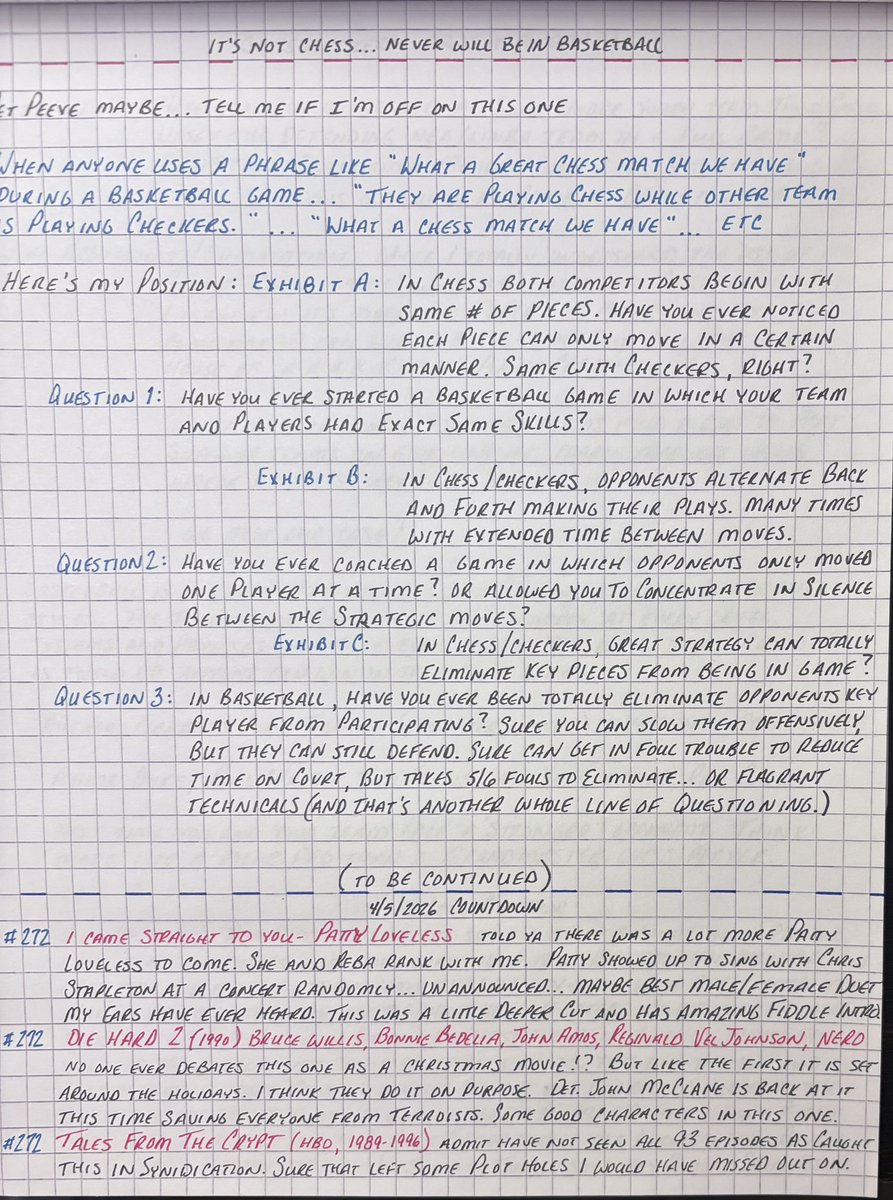 IT'S NOT CHESS... NEVER WILL BE IN BASKETBALL
ET PEEVE MAYBE... TELL ME IF I'M OFF ON THIS ONE
WHEN ANYONE USES A PHRASE LIKE "WHAT A GREAT CHESS MATCH WE HAVE"
DURING A BASKETBALL GAME... "THEY ARE PLAYING CHESS WHILE OTHER TEAM
IS PLAYING CHECKERS."... "WHAT A CHESS MATCH WE HAVE"... ETC
HERE'S MY POSITION: EXHIBIT A: IN CHESS BOTH COMPETITORS BEGIN WITH
SAME # OF PIECES. HAVE YOU EVER NOTICED
EACH PIECE CAN ONLY MOVE IN A CERTAIN
MANNER. SAME WITH CHECKERS, RIGHT?
QUESTION 1: HAVE YOU EVER STARTED A BASKETBALL GAME IN WHICH YOUR TEAM
AND PLAYERS HAD EXACT SAME SKILLS?
EXHIBIT B: IN CHESS/CHECKERS, OPPONENTS ALTERNATE BACK
AND FORTH MAKING THEIR PLAYS. MANY TIMES
WITH EXTENDED TIME BETWEEN MOVES.
QUESTION 2: HAVE YOU EVER COACHED A GAME IN WHICH OPPONENTS ONLY MOVED
ONE PLAYER AT A TIME? OR ALLOWED YOU TO CONCENTRATE IN SILENCE
BETWEEN THE STRATEGIC MOVES?
EXHIBIT C: IN CHESS/CHECKERS, GREAT STRATEGY CAN TOTALLY
ELIMINATE KEY PIECES FROM BEING IN GAME?
QUESTION 3: IN BASKETBALL, HAVE YOU EVER BEEN TOTALLY ELIMINATE OPPONENTS KEY
PLAYER FROM PARTICIPATING? SURE YOU CAN SLOW THEM OFFENSIVELY,
BUT THEY CAN STILL DEFEND. SURE CAN GET IN FOUL TROUBLE TO REDUCE
TIME ON COURT, BUT TAKES 5/6 FOULS TO ELIMINATE... OR FLAGRANT
TECHNICALS (AND THAT'S ANOTHER WHOLE LINE OF QUESTIONING.)
(TO BE CONTINUED)
4/5/2026 COUNTDOWN
#272 I CAME STRAIGHT TO YOU - PATTY LOVELESS TOLD YA THERE WAS A LOT MORE PATTY
LOVELESS TO COME. SHE AND REBA RANK WITH ME. PATTY SHOWED UP TO SING WITH CHRIS
STAPLETON AT A CONCERT RANDOMLY... UNANNOUNCED... MAYBE BEST MALE/FEMALE DUET
MY EARS HAVE EVER HEARD. THIS WAS A LITTLE DEEPER CUT AND HAS AMAZING FIDDLE INTRO.
#272 DIE HARD 2 (1990) BRUCE WILLIS, BONNIE BEDELIA, JOHN AMOS, REGINALD VEL JOHNSON, NERO
NO ONE EVER DEBATES THIS ONE AS A CHRISTMAS MOVIE!? BUT LIKE THE FIRST IT IS SET
AROUND THE HOLIDAYS. I THINK THEY DO IT ON PURPOSE. DET. JOHN MCCLANE IS BACK AT IT
THIS TIME SAVING EVERYONE FROM TERROISTS. SOME GOOD CHARACTERS IN THIS ONE.
#272 TALES FROM THE CRYPT (HBO, 1989-1996) ADMIT HAVE NOT SEEN ALL 93 EPISODES AS CAUGHT
THIS IN SYNIDICATION. SURE THAT LEFT SOME PLOT HOLES I WOULD HAVE MISSED OUT ON.